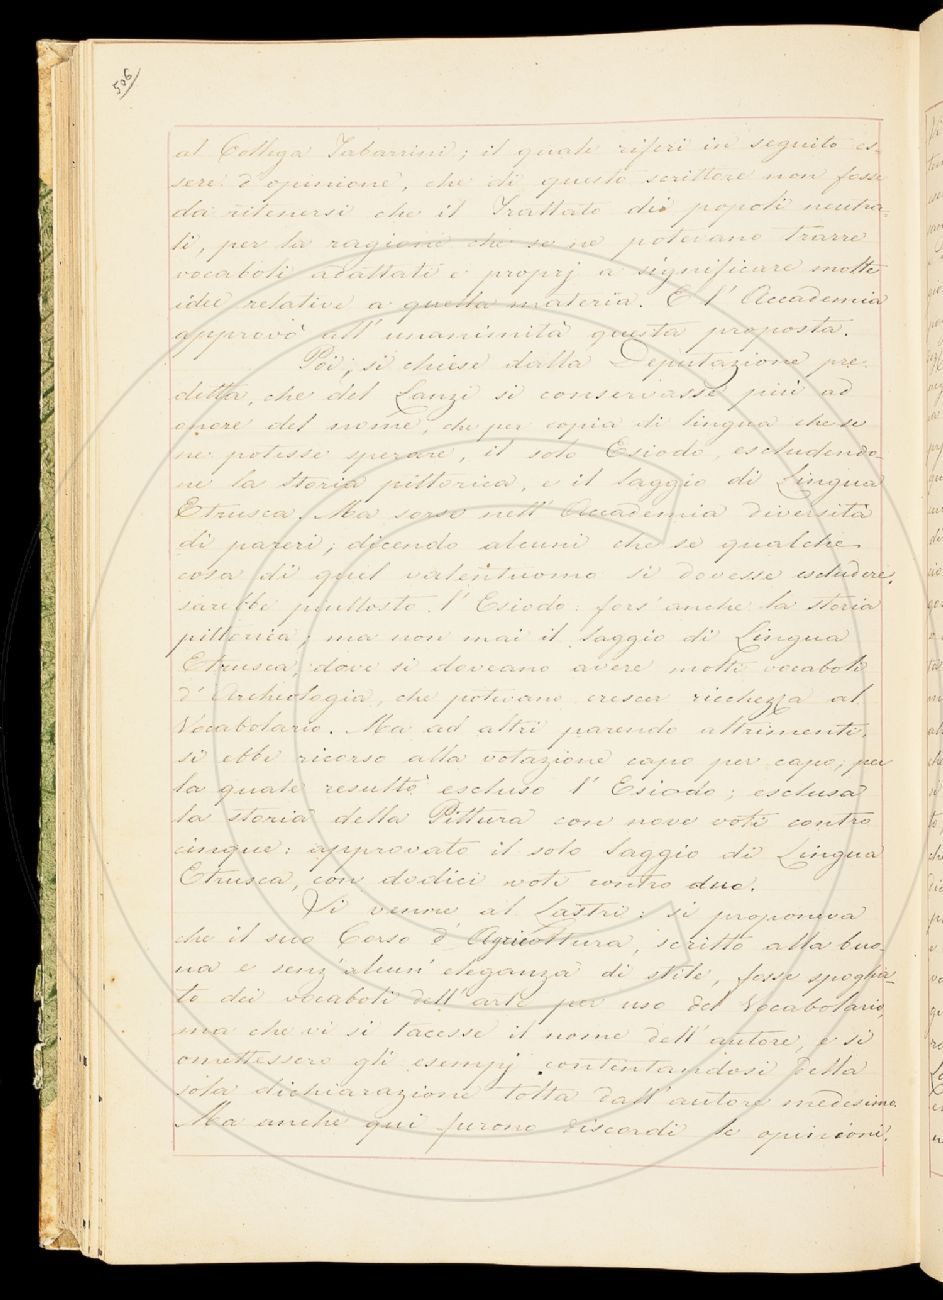 506
al Collega Tabarrini; il quale riferì in seguito es-
sere d'opinione, che di questo scrittore non fosse
da ritenersi che il Trattato dei popoli neutra-
li, per la ragione che se ne potevano trarre
vocaboli adattati e proprj a significare molte
idee relative a quella materia. E l'Accademia
approvò all'unanimità questa proposta.
Poi, si chiese dalla Deputazione pre-
detta, che del Lanzi si conservasse più ad
onore del nome, che per copia di lingua che se
ne potesse sperare, il solo Esiodo, escludendo-
ne la storia pittorica, e il Saggio di Lingua
Etrusca. Ma sorse nell'Accademia diversità
di pareri; dicendo alcuni che se qualche
cosa di quel valentuomo si dovesse escludere,
sarebbe piuttosto l'Esiodo: fors'anche la storia
pittorica; ma non mai il Saggio di Lingua
Etrusca, dove si doveano avere molti vocaboli
d'Archeologia, che potevano crescer ricchezza al
Vocabolario. Ma ad altri parendo altrimenti,
si ebbe ricorso alla votazione capo per capo; per
la quale resultò escluso l'Esiodo; esclusa
la storia della Pittura con nove voti contro
cinque: approvato il solo Saggio di Lingua
Etrusca, con dodici voti contro due.
Si venne al Lastri: si proponeva
che il suo Corso d'Agricoltura, scritto alla buo-
na e senz'alcun'eleganza di stile, fosse spoglia-
to dei vocaboli dell'arte per uso del Vocabolario,
ma che vi si tacesse il nome dell'autore, e si
omettessero gli esempj contentandosi della
sola dichiarazione tolta dall'autore medesimo.
Ma anche qui furono discordi le opinioni: